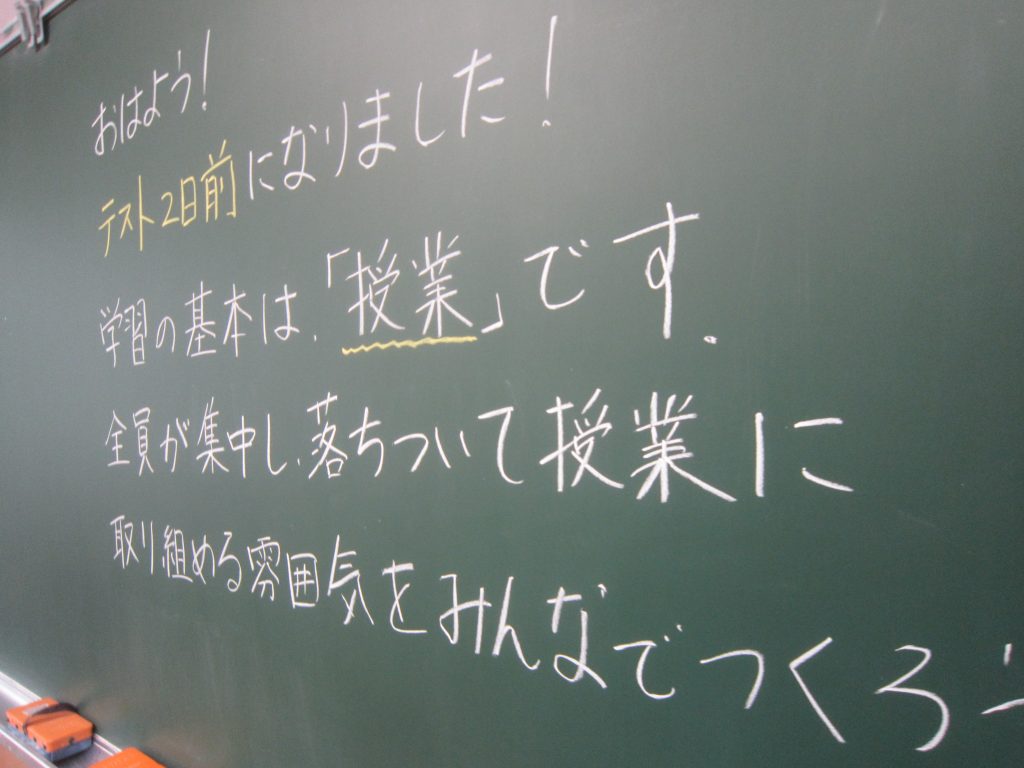 おはよう!
テスト2日前になりました!
学習の基本は、「授業」です。
全員が集中し、落ちついて授業に
取り組める雰囲気をみんなでつくろ